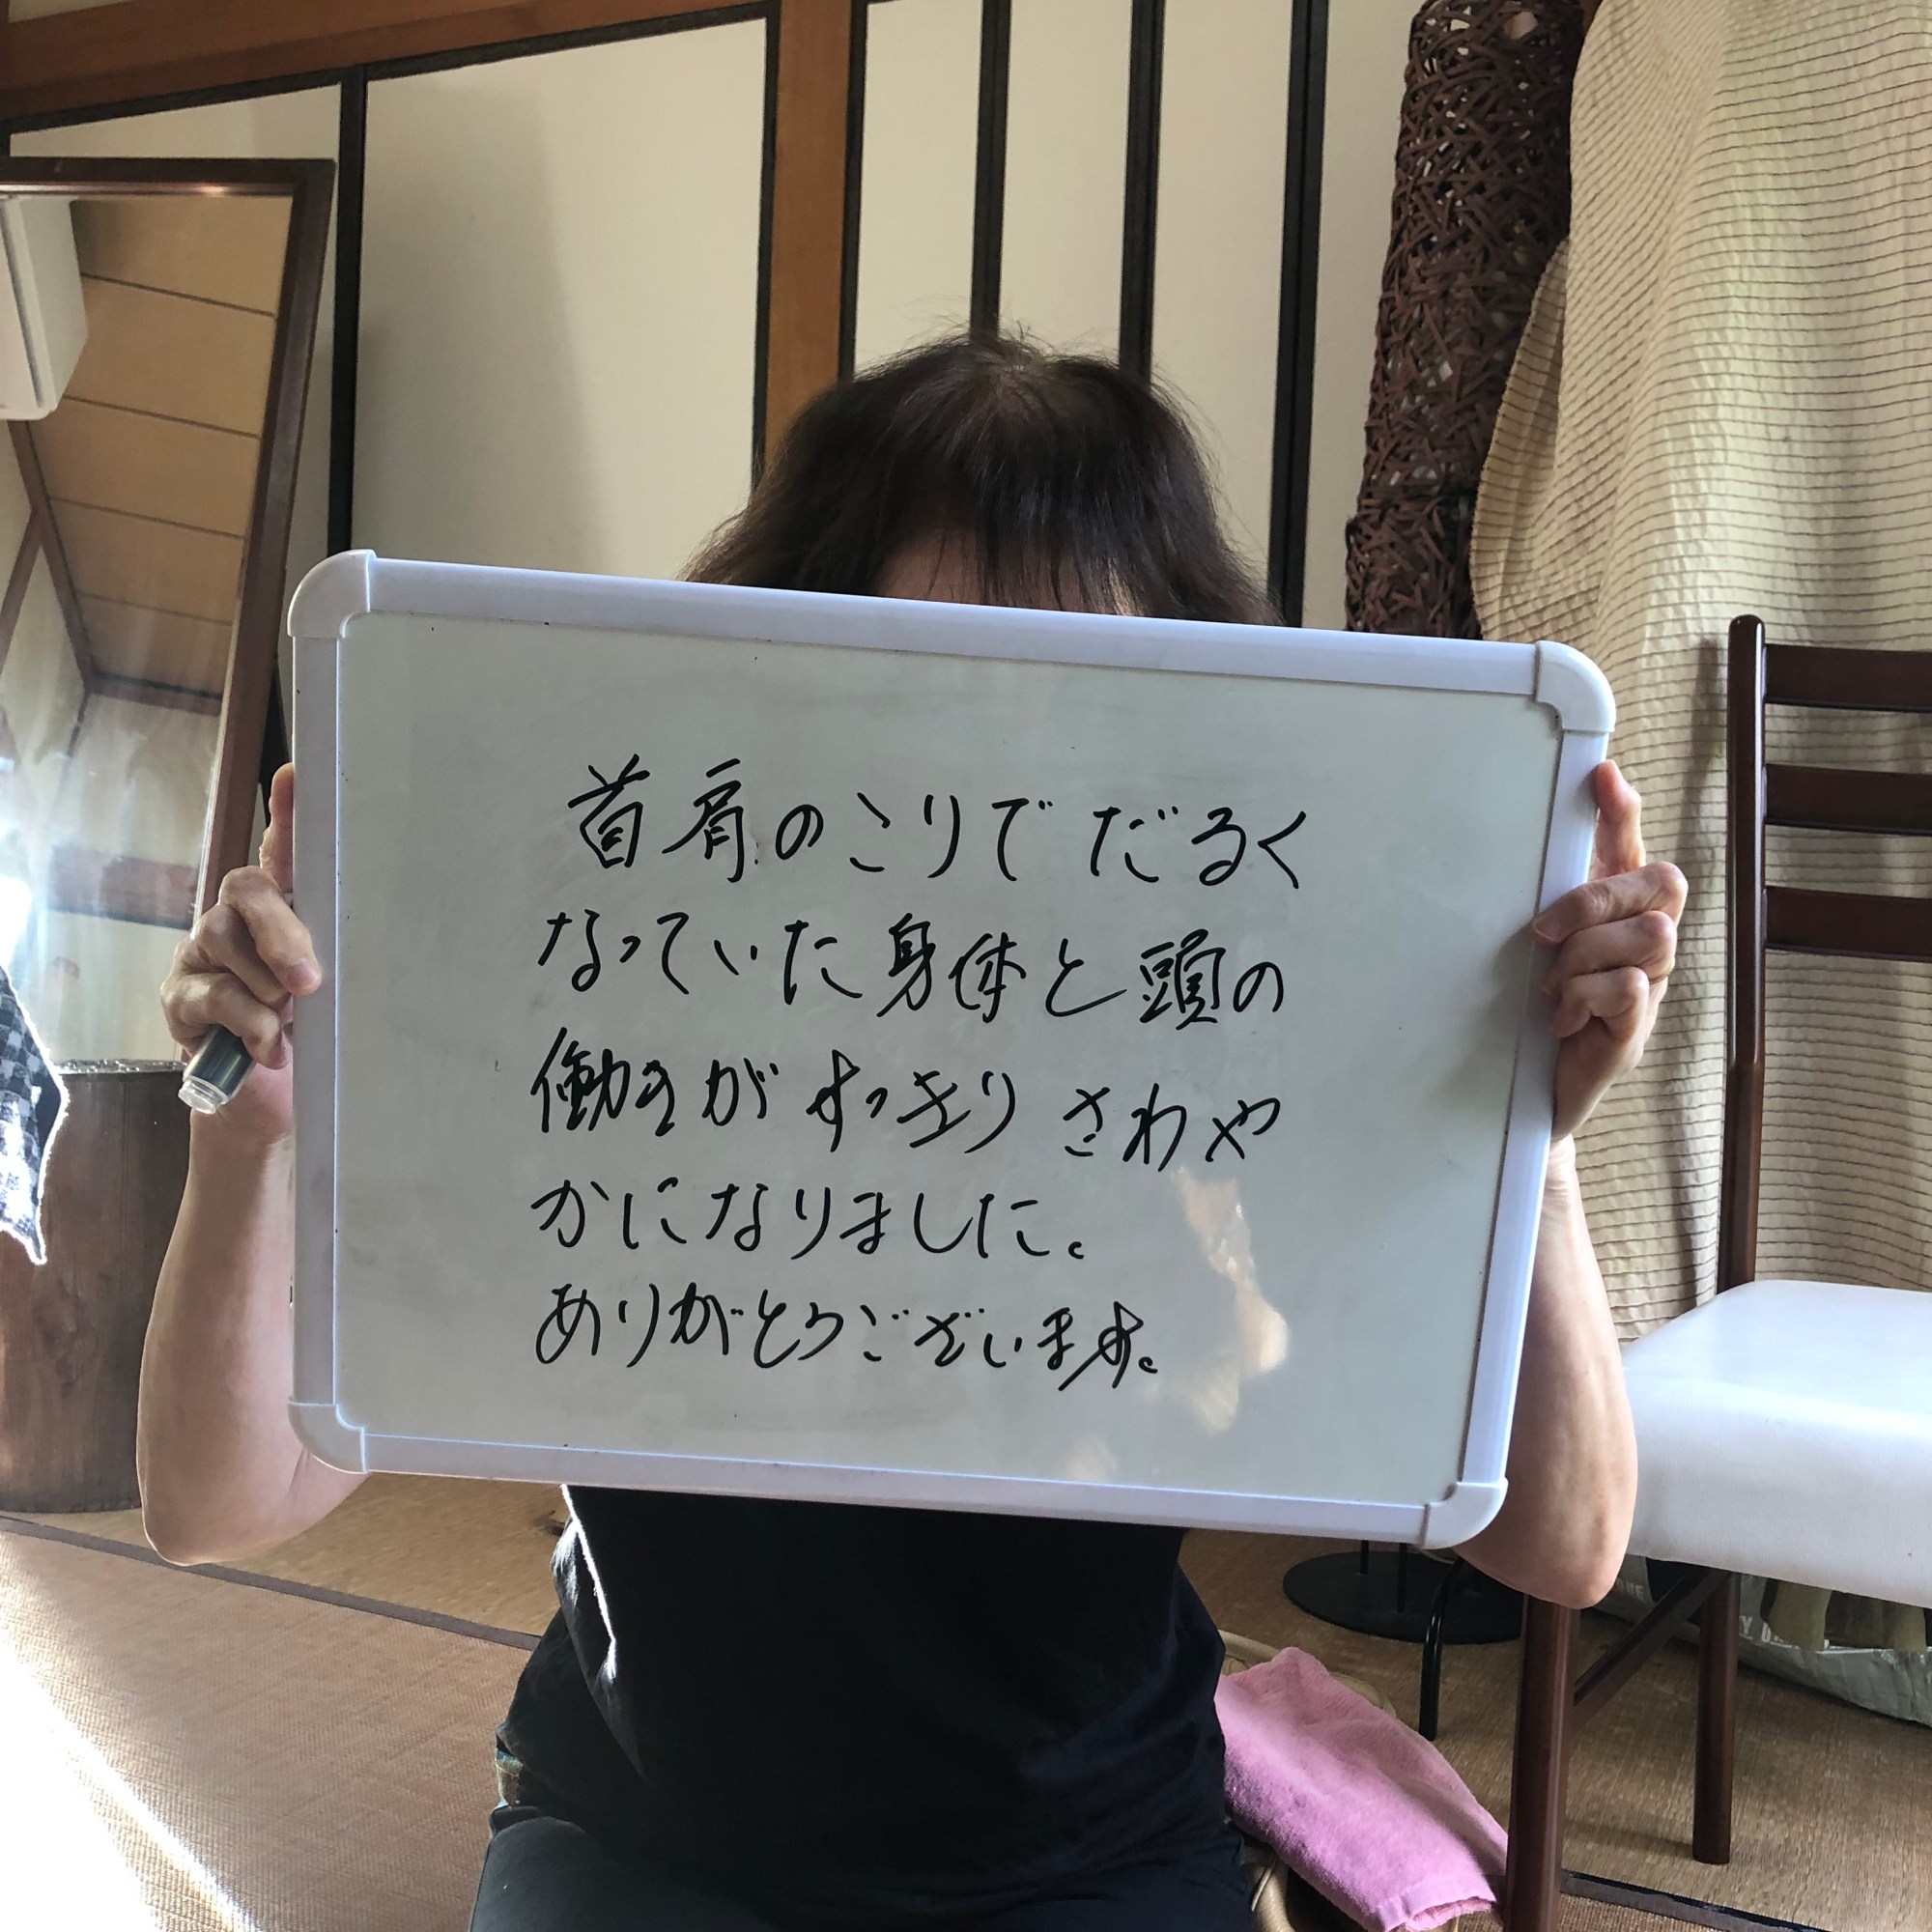 首肩のこりでだるく
なっていた身体と頭の
働きがすっきりさわや
かになりました。
ありがとうございます。